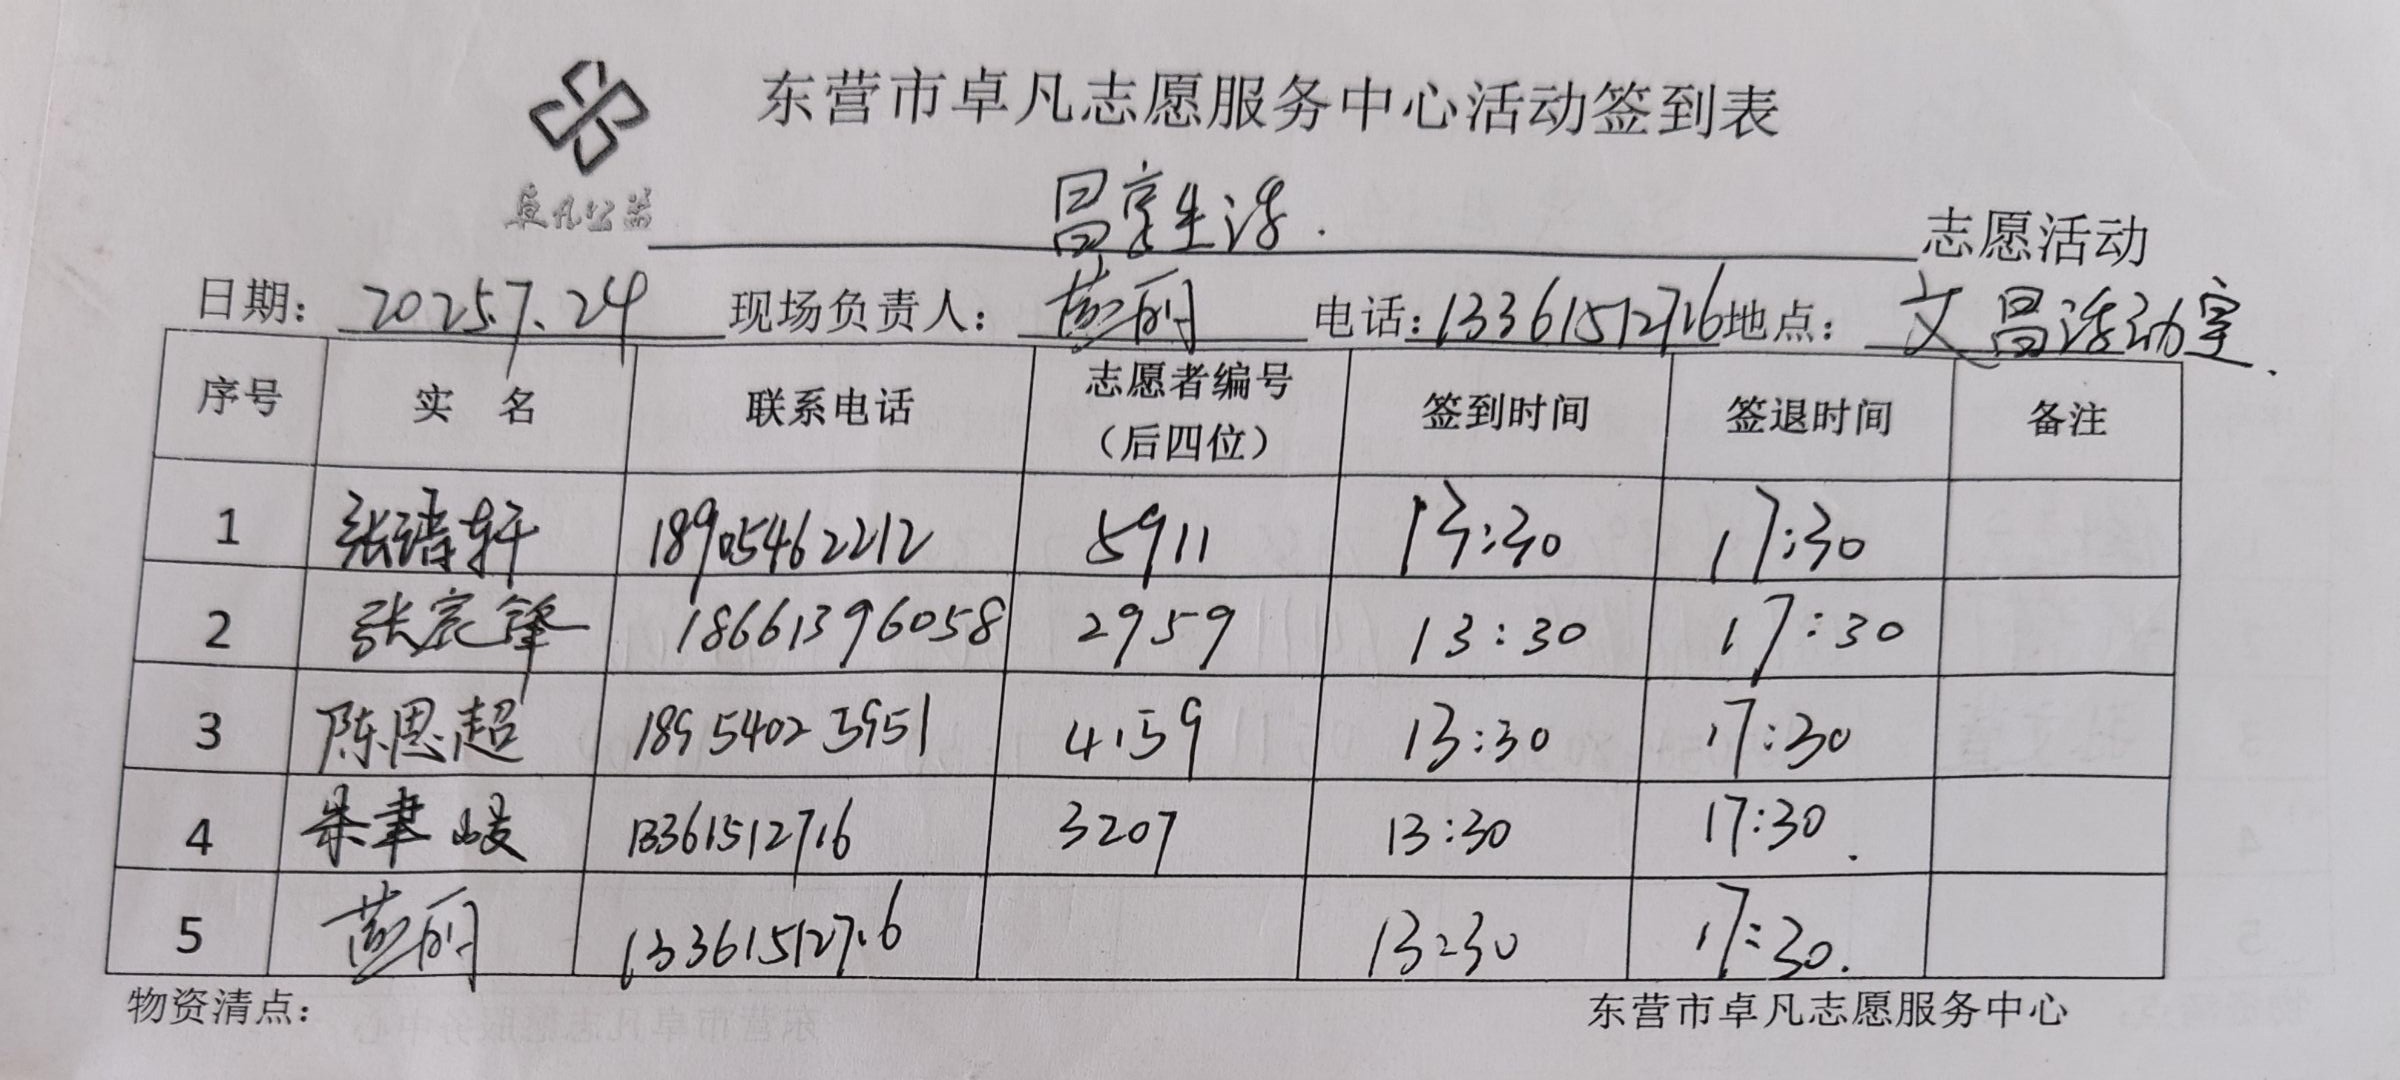 东营市卓凡志愿服务中心活动签到表
卓凡公益
昌享生活. 志愿活动
日期: 2025.7.24 现场负责人: 电话: 13361512716 地点: 文昌活动室.
序号 实 名 联系电话 志愿者编号（后四位） 签到时间 签退时间 备注
1 张靖轩 18905462212 5911 13:30 17:30
2 张宸锋 18661396058 2959 13:30 17:30
3 陈思超 18954023951 4159 13:30 17:30
4 朱聿峻 13361512716 3207 13:30 17:30.
5 13361512716 13:30 17:30.
物资清点: 东营市卓凡志愿服务中心